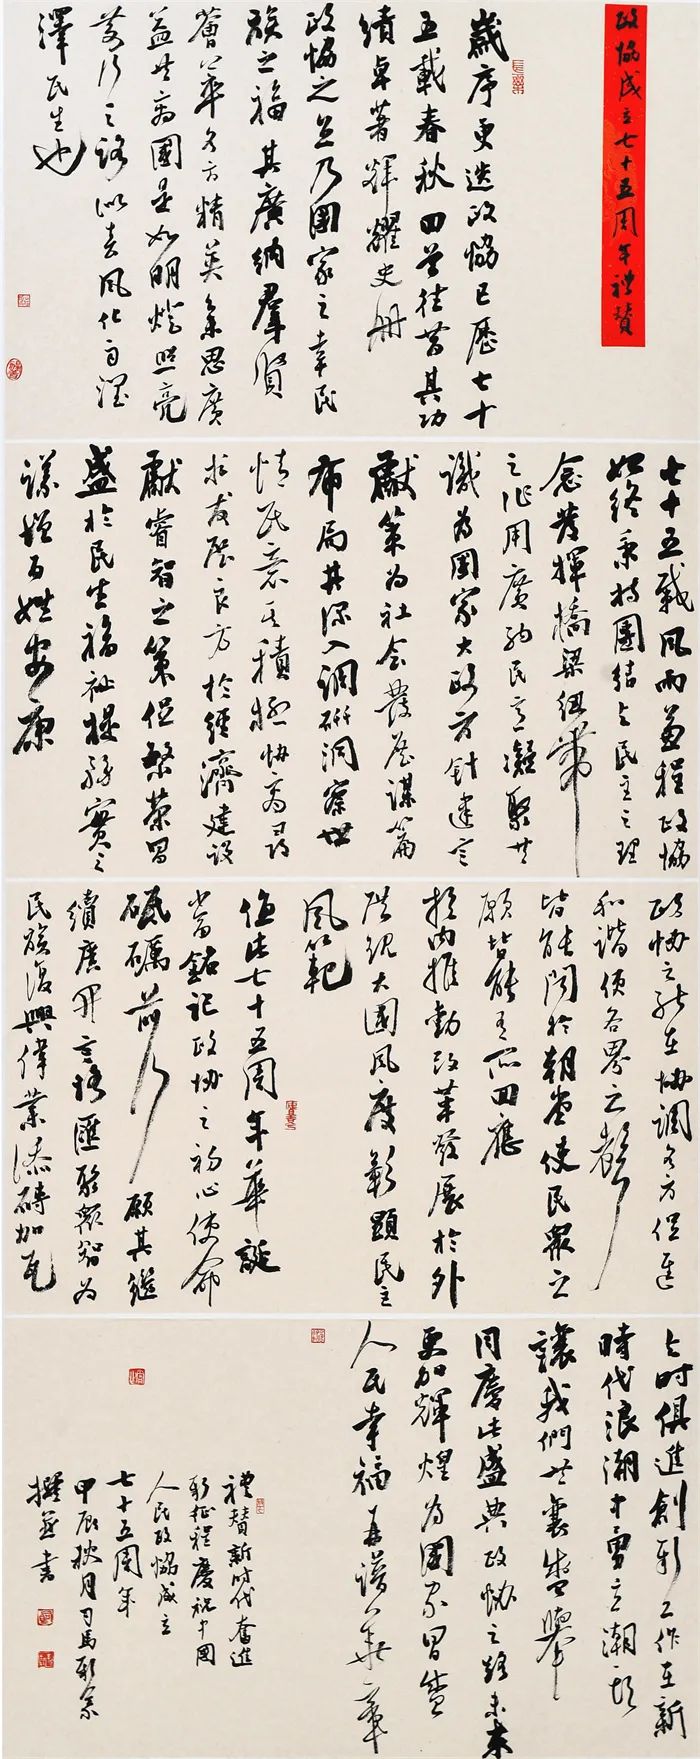 政協成立七十五周年禮贊
歲序更迭政協已歷七十
五載春秋回首往昔其功
績卓著輝耀史冊
政協之立乃國家之幸民
族之福其廣納群賢
薈萃各方精英集思廣
益共商國是如明燈照亮
前行之路似春風化雨潤
澤民生也
七十五載風雨兼程政協
始終秉持團結與民主之理
念發揮橋梁紐帶
之作用廣納民意凝聚共
識為國家大政方針建言
獻策為社會發展謀篇
布局其深入調研洞察世
情民意其積極協商尋
求發展良方於經濟建設
獻睿智之策促繁榮昌
盛於民生福祉提務實之
謀增百姓安康
政協之能在協調各方促進
和諧使各界之聲
皆能聞於朝堂使民眾之
願皆能有所回應
於內推動改革發展於外
展現大國風度彰顯民主
風範
值此七十五周年華誕
當銘記政協之初心使命
砥礪前行願其繼
續廣開言路匯聚眾智為
民族復興偉業添磚加瓦
與時俱進創新工作在新
時代浪潮中勇立潮頭
讓我們共襄盛舉
同慶此盛典政協之路未來
更加輝煌為國家昌盛
人民幸福再譜華章
禮贊新時代奮進
新征程慶祝中國
人民政協成立
七十五周年
甲辰秋月司馬彩宗
撰並書